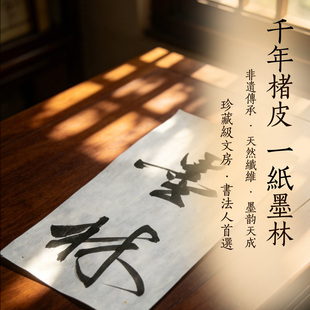 千年楮皮 一紙墨林
非遺傳承 · 天然纖維 · 墨韵天成
珍藏級文房 · 書法人首選
墨林